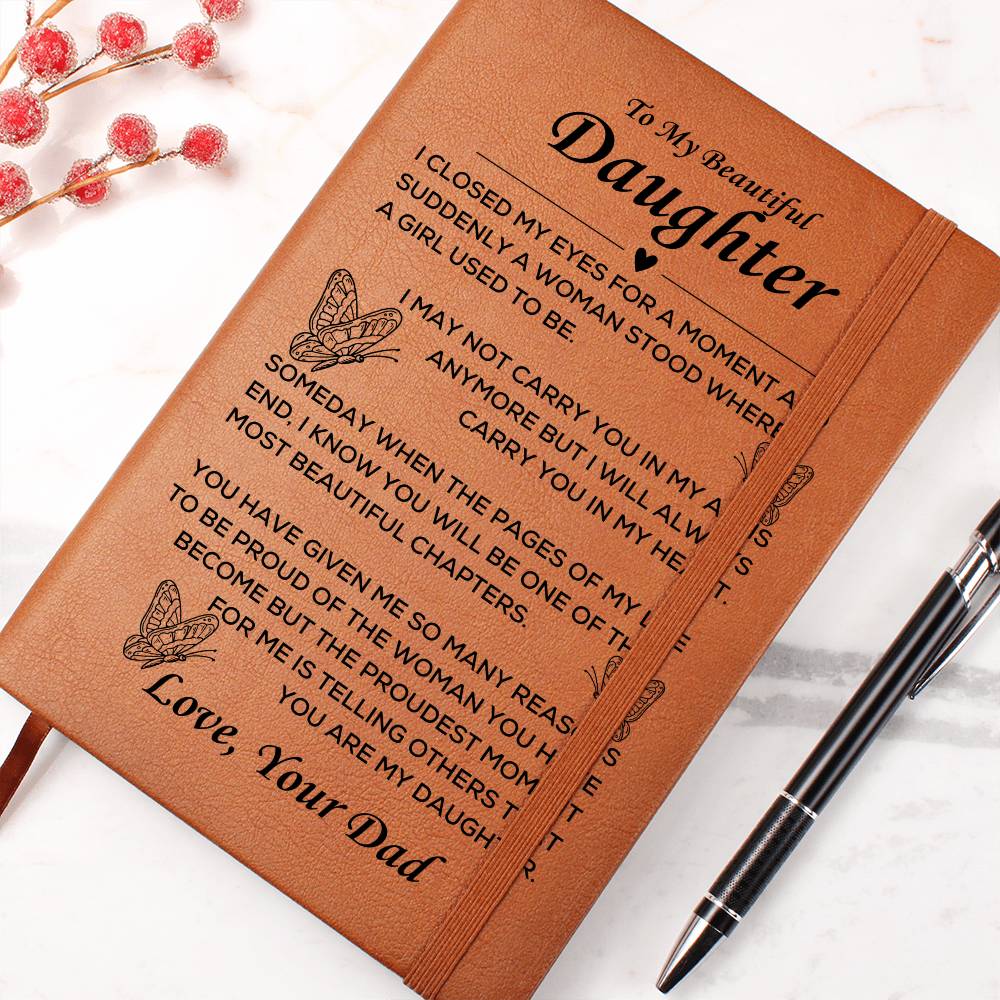 To My Beautiful
Daughter
I CLOSED MY EYES FOR A MOMENT A
SUDDENLY A WOMAN STOOD WHERE
A GIRL USED TO BE.
I MAY NOT CARRY YOU IN MY A S
ANYMORE BUT I WILL ALW S
CARRY YOU IN MY HE T.
SOMEDAY WHEN THE PAGES OF MY L E
END, I KNOW YOU WILL BE ONE OF TH
MOST BEAUTIFUL CHAPTERS.
YOU HAVE GIVEN ME SO MANY REAS S
TO BE PROUD OF THE WOMAN YOU H E
BECOME BUT THE PROUDEST MOM T
FOR ME IS TELLING OTHERS T T
YOU ARE MY DAUGHT R.
Love, Your Dad